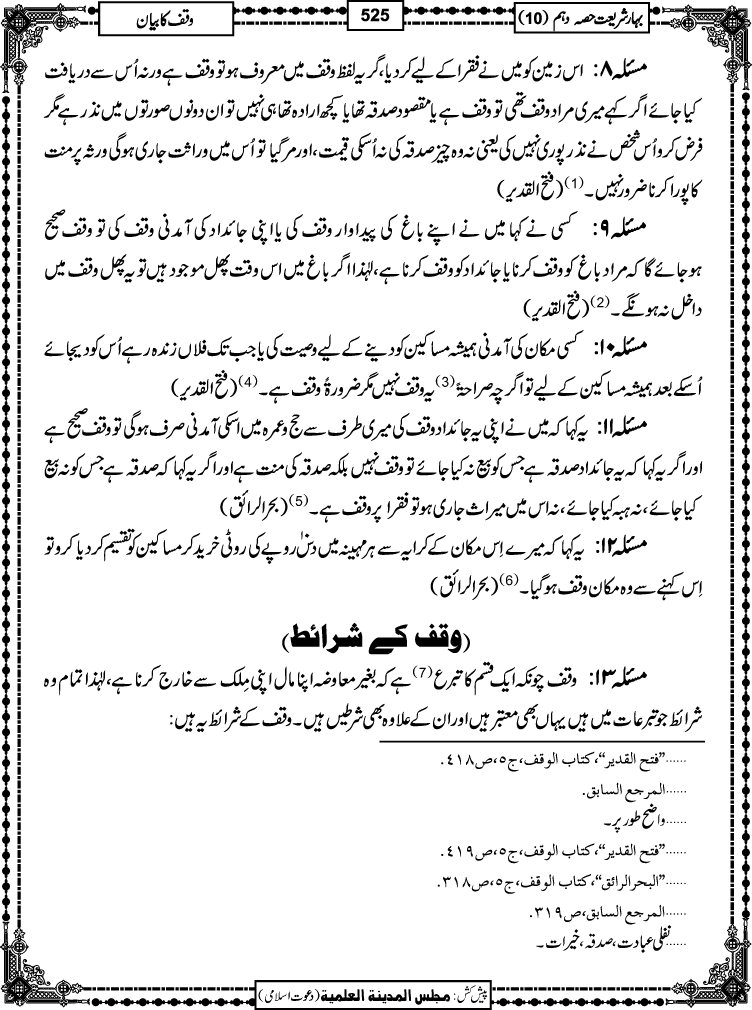 بہارشریعت حصہ دہم (10)
525
وقف کا بیان
مسئلہ ۸: اس زمین کو میں نے فقرا کے لیے کردیا، گر یہ لفظ وقف میں معروف ہو تو وقف ہے ورنہ اُس سے دریافت
کیا جائے اگر کہے میری مراد وقف تھی تو وقف ہے یا مقصود صدقہ تھا یا کچھ ارادہ تھا ہی نہیں تو ان دونوں صورتوں میں نذر ہے مگر
فرض کرو اُس شخص نے نذر پوری نہیں کی یعنی نہ وہ چیز صدقہ کی نہ اُسکی قیمت، اور مرگیا تو اُس میں وراثت جاری ہوگی ورثہ پر منت
کا پورا کرنا ضرور نہیں۔ (1) (فتح القدیر)
مسئلہ ۹: کسی نے کہا میں نے اپنے باغ کی پیداوار وقف کی یا اپنی جائداد کی آمدنی وقف کی تو وقف صحیح
ہو جائے گا کہ مراد باغ کو وقف کرنا یا جائداد کو وقف کرنا ہے، لہٰذا اگر باغ میں اس وقت پھل موجود ہیں تو یہ پھل وقف میں
داخل نہ ہونگے۔ (2) (فتح القدیر)
مسئلہ ۱۰: کسی مکان کی آمدنی ہمیشہ مساکین کو دینے کے لیے وصیت کی یا جب تک فلاں زندہ رہے اُس کو دیجائے
اُسکے بعد ہمیشہ مساکین کے لیے تو اگرچہ صراحۃً (3) یہ وقف نہیں مگر ضرورۃً وقف ہے۔ (4) (فتح القدیر)
مسئلہ ۱۱: یہ کہا کہ میں نے اپنی یہ جائداد وقف کی میری طرف سے حج و عمرہ میں اسکی آمدنی صرف ہوگی تو وقف صحیح ہے
اور اگر یہ کہا کہ یہ جائداد صدقہ ہے جس کو بیع نہ کیا جائے تو وقف نہیں بلکہ صدقہ کی منت ہے اور اگر یہ کہا کہ صدقہ ہے جس کو نہ بیع
کیا جائے، نہ ہبہ کیا جائے، نہ اس میں میراث جاری ہو تو فقرا پر وقف ہے۔ (5) (بحرالرائق)
مسئلہ ۱۲: یہ کہا کہ میرے اِس مکان کے کرایہ سے ہر مہینہ میں دس روپے کی روٹی خرید کر مساکین کو تقسیم کردیا کرو تو
اِس کہنے سے وہ مکان وقف ہوگیا۔ (6) (بحرالرائق)
(وقف کے شرائط)
مسئلہ ۱۳: وقف چونکہ ایک قسم کا تبرع (7) ہے کہ بغیر معاوضہ اپنا مال اپنی مِلک سے خارج کرنا ہے، لہٰذا تمام وہ
شرائط جو تبرعات میں ہیں یہاں بھی معتبر ہیں اور ان کے علاوہ بھی شرطیں ہیں۔ وقف کے شرائط یہ ہیں:
......”فتح القدیر“، کتاب الوقف، ج۵، ص۴۱۸.
......المرجع السابق.
......واضح طور پر۔
......”فتح القدیر“، کتاب الوقف، ج۵، ص۴۱۹.
......”البحرالرائق“، کتاب الوقف، ج۵، ص۳۱۸.
......المرجع السابق، ص۳۱۹.
......نفلی عبادت، صدقہ، خیرات۔
پیش کش: مجلس المدینة العلمیة (دعوت اسلامی)